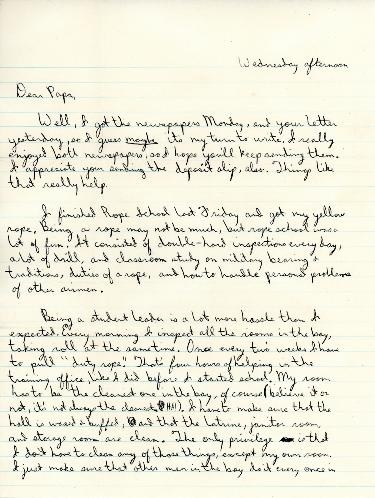 Wednesday afternoon
Dear Papa,
Well, I got the newspapers Monday, and your letter
yesterday, so I guess maybe its my turn to write. I really
enjoyed both newspapers, so I hope you'll keep sending them.
I appreciate you sending the deposit slip, also. Things like
that really help.
I finished Rope School last Friday and got my yellow
rope. Being a rope may not be much, but rope school was a
lot of fun. It consisted of double-hard inspections every day,
a lot of drill, and classroom study on military bearing +
traditions, duties of a rope, and how to handle personal problems
of other airmen.
Being a student leader is a lot more hassle than I
expected. Every morning I inspect all the rooms in the bay,
taking roll at the same time. Once every two weeks I have
to pull "duty rope." That's four hours of helping in the
training office, like I did before I started school. My room
has to be the cleanest one in the bay, of course (believe it or
not, it's not always the cleanest, HA!). I have to make sure that the
hall is waxed + buffed, and that the latrine, janitor room,
and storage room are clean. The only privilege is that
I don't have to clean any of those things, except my own room.
I just make sure that other men in the bay do it every once in